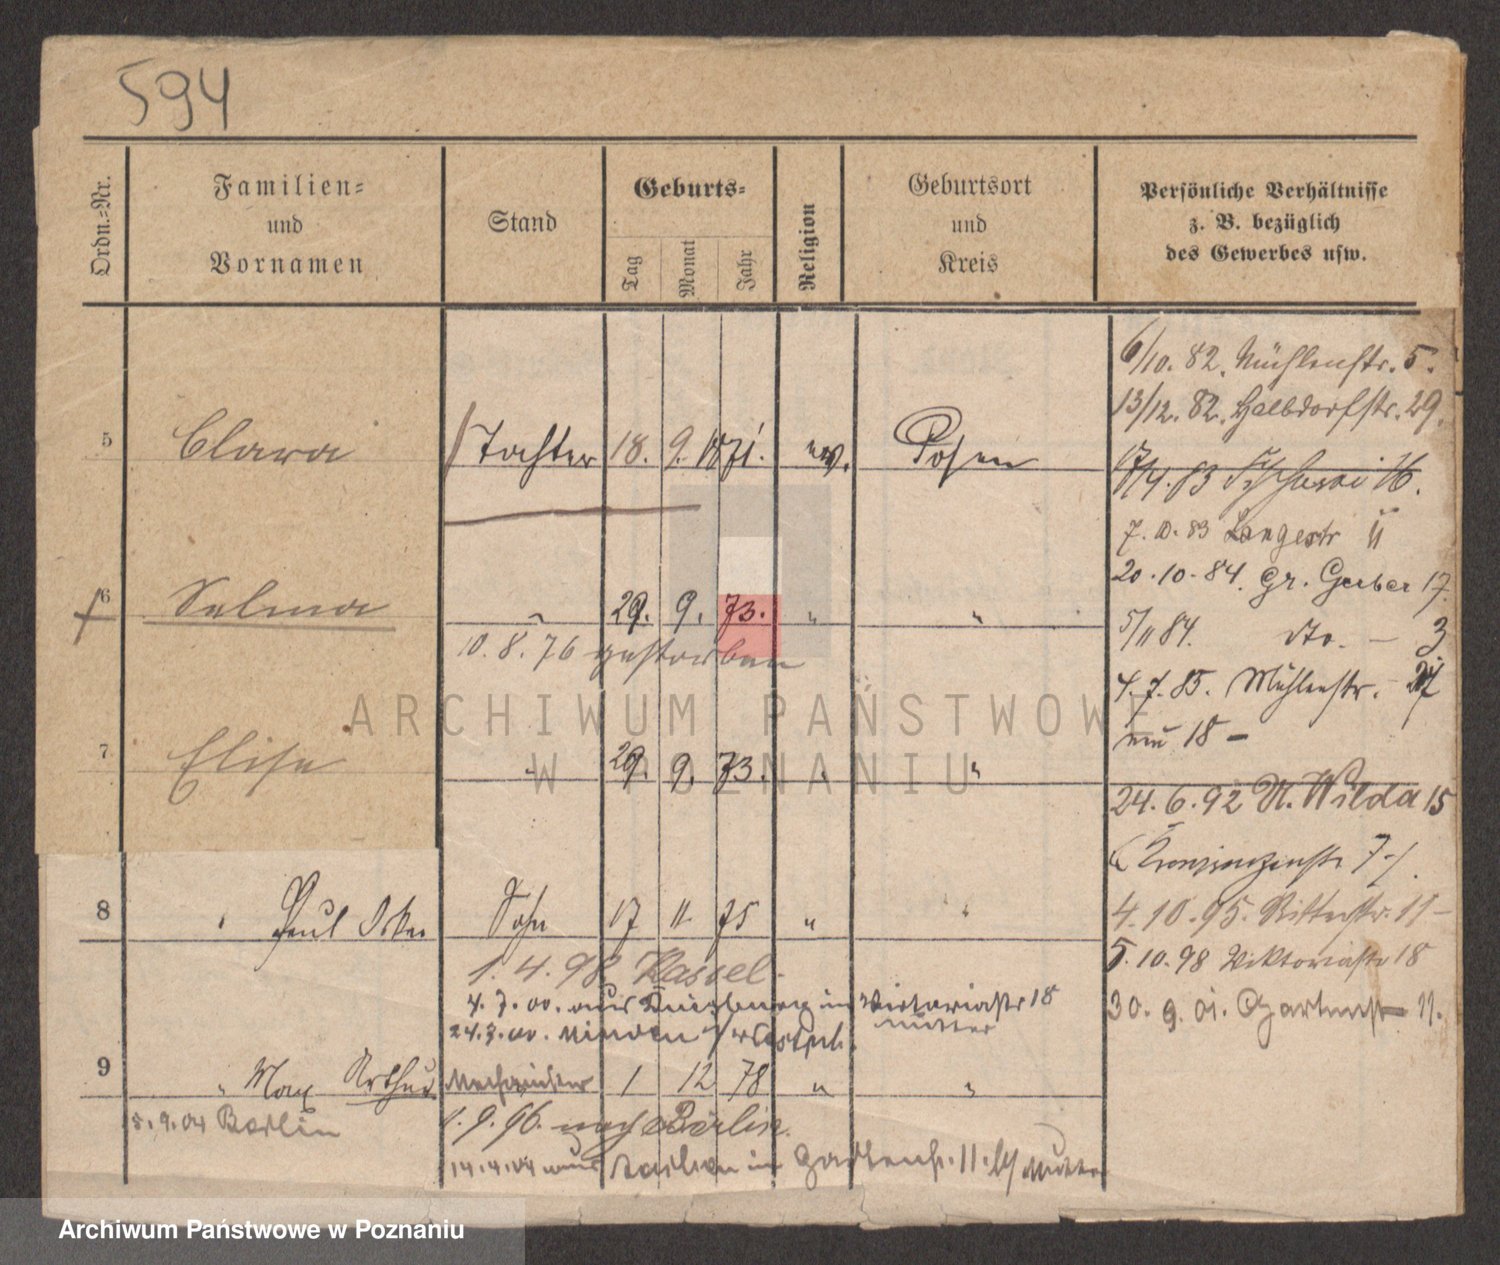 594
Ordn.-Nr.
Familien-
und
Vornamen
Stand
Geburts-
Tag
Monat
Jahr
Religion
Geburtsort
und
Kreis
Persönliche Verhältnisse
z. B. bezüglich
des Gewerbes usw.
5 Clara Tochter 18. 9. 1871. ev. Posen
6 Selma " 29. 9. 73. " "
10. 8. 76 gestorben
7 Elise " 29. 9. 73. " "
8 " Paul Sohn 17 11 75 " "
1. 4. 98 Kassel.
4. 7. 00. aus in Victoriastr 18
Mutter
24.3.00. Minden i/Westph.
9 " Max Arthur Mechaniker 1 12 78 " "
5.9.04 Berlin
1. 9. 96. nach Berlin.
14.4.04 aus Berlin in Gartenstr. 11. b/ Mutter
6/10. 82. Mühlenstr. 5.
13/12. 82. Halbdorfstr. 29.
17/4. 83 16.
7. 10. 83 Langestr 11
20. 10. 84. Gr. Gerber 17.
5/11 84. dto. — 3
4. 7. 85. Mühlenstr. 27
nun 18 –
24. 6. 92 U. Wilda 15
(Kronprinzenstr 7–).
4. 10. 95. Ritterstr. 11 –
5. 10. 98 Viktoriastr 18
30. 9. 01. Gartenstr 11.
ARCHIWUM PAŃSTWOWE
W POZNANIU
Archiwum Państwowe w Poznaniu